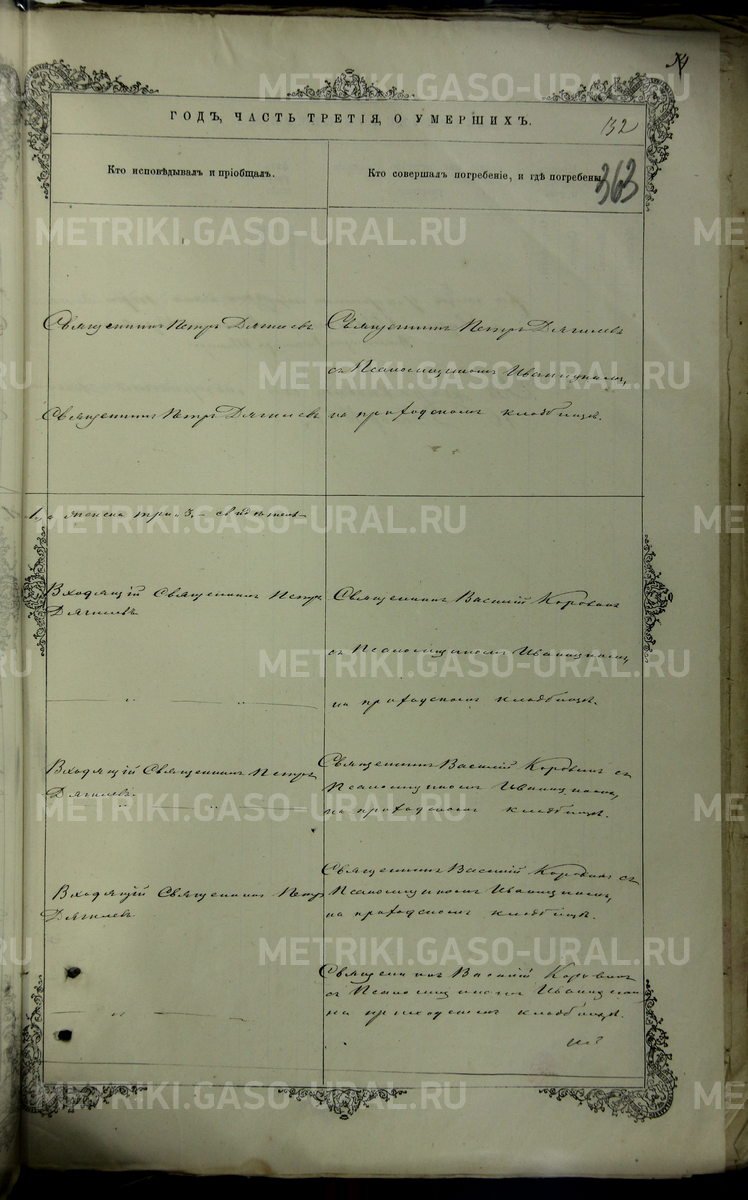 132
363
ГОДЪ, ЧАСТЬ ТРЕТІЯ, О УМЕРШИХЪ.
Кто исповѣдывалъ и пріобщалъ.
Кто совершалъ погребеніе, и гдѣ погребены.
METRIKI.GASO-URAL.RU
Священникъ Петръ Дягилевъ
Священникъ Петръ Дягилевъ
съ Псаломщикомъ Иваницкимъ,
Священникъ Петръ Дягилевъ
на приходскомъ кладбищѣ.
женска три 3.
Входящій Священникъ Петръ
Дягилевъ
Священникъ Василій Коровинъ
съ Псаломщикомъ Иваницкимъ,
на приходскомъ кладбищѣ.
Входящій Священникъ Петръ
Дягилевъ.
Священникъ Василій Коровинъ съ
Псаломщикомъ Иваницкимъ,
на приходскомъ кладбищѣ.
Входящій Священникъ Петръ
Дягилевъ
Священникъ Василій Коровинъ съ
Псаломщикомъ Иваницкимъ,
на приходскомъ кладбищѣ.
Священникъ Василій Коровинъ
съ Псаломщикомъ Иваницкимъ
на приходскомъ кладбищѣ.